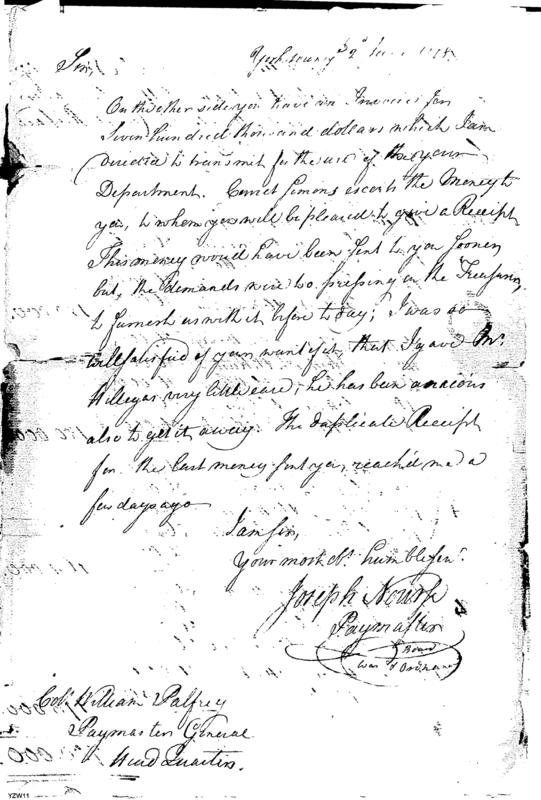 York town 2d June 1778
Sir,
On the other side you have an Invoice for
Seven hundred thousand dollars which I am
directed to transmit for the use of the your
Department. Cornet Simons escorts the Money to
you, to whom you will be pleased to give a Receipt
This money would have been sent to you sooner
but, the demands were too pressing on the Treasury,
to furnish us with it before to day; I was so
well satisfied of your want of it, that I gave Mr
Hillegas very little ease; he has been anxious
also to get it away. The duplicate Receipt
for the last money sent you, reach'd me a
few days ago
I am Sir,
Your most Obt humble Servt.
Joseph Nourse
Paymaster
Board
War & Ordnance
Colo. William Palfrey
Paymaster General
Head Quarters.
000
YZW11